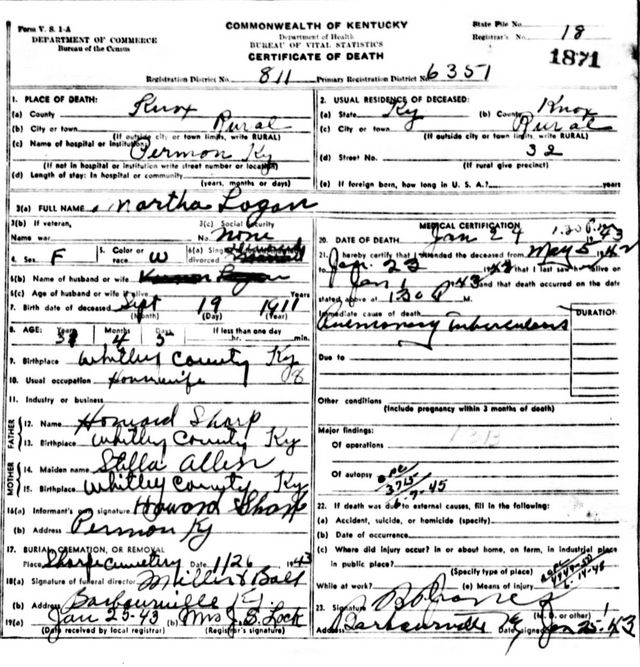 Form V. S. 1-A
DEPARTMENT OF COMMERCE
Bureau of the Census
COMMONWEALTH OF KENTUCKY
Department of Health
BUREAU OF VITAL STATISTICS
CERTIFICATE OF DEATH
State File No.
Registrar's No. 18
1871
Registration District No. 811 Primary Registration District No. 6351
1. PLACE OF DEATH:
(a) County Knox
(b) City or town Rural
(If outside city or town limits, write RURAL)
(c) Name of hospital or institution:
Permon Ky
(If not in hospital or institution write street number or location)
(d) Length of stay: In hospital or community
(years, months or days)
2. USUAL RESIDENCE OF DECEASED:
(a) State Ky (b) County Knox
(c) City or town Rural
(If outside city or town limits, write RURAL)
(d) Street No. 32
(If rural give precinct)
(e) If foreign born, how long in U. S. A.? years
3(a) FULL NAME Martha Logan
3(b) If veteran,
Name war
3(c) Social Security
No. None
4. Sex F 5. Color or race W 6(a) Single
divorced
6(b) Name of husband or wife Logan
6(c) Age of husband or wife if alive Years
7. Birth date of deceased Sept 19 1911
(Month) (Day) (Year)
8. AGE: Years Months Days If less than one day
31 4 5 hr. min.
9. Birthplace Whitley County Ky
10. Usual occupation Housewife 8
11. Industry or business
FATHER
12. Name Howard Sharp
13. Birthplace Whitley County Ky
MOTHER
14. Maiden name Stella Allen
15. Birthplace Whitley County Ky
16(a) Informant's own signature Howard Sharp
(b) Address Permon Ky
17. BURIAL, CREMATION, OR REMOVAL
Place Sharp Cemetery Date 1/26 1943
18(a) Signature of funeral director
(b) Address Barbourville Ky.
19(a) Jan 25-43 (b) Mrs J. B. Lock
(Date received by local registrar) (Registrar's signature)
MEDICAL CERTIFICATION
20. DATE OF DEATH Jan 24 43
21. I hereby certify that I attended the deceased from May 5 1942
to Jan. 23 1943 that I last saw alive on
Jan 1943 and that death occurred on the date
stated above at 1:30 P M.
Immediate cause of death
Pulmonary Tuberculosis
DURATION
Due to
Other conditions
(Include pregnancy within 3 months of death)
Major findings:
Of operations
Of autopsy
3715
6-7-45
22. If death was due to external causes, fill in the following:
(a) Accident, suicide, or homicide (specify)
(b) Date of occurrence
(c) Where did injury occur? In or about home, on farm, in industrial place
in public place?
(Specify type of place)
While at work? (e) Means of injury
6-14-48
23. Signature
(M. D. or other)
Address Barbourville Ky Date signed Jan 25-43